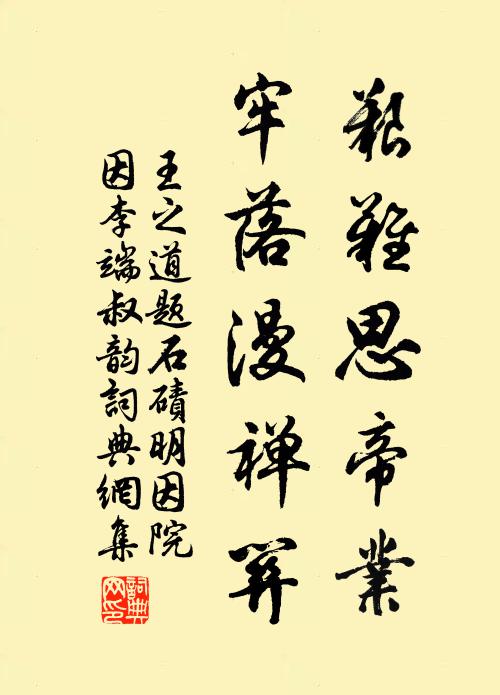 艱難思帝業
牢落漫禅關
王之道题石磧明因院
因李端叔韵詞典網集
詞典
网印